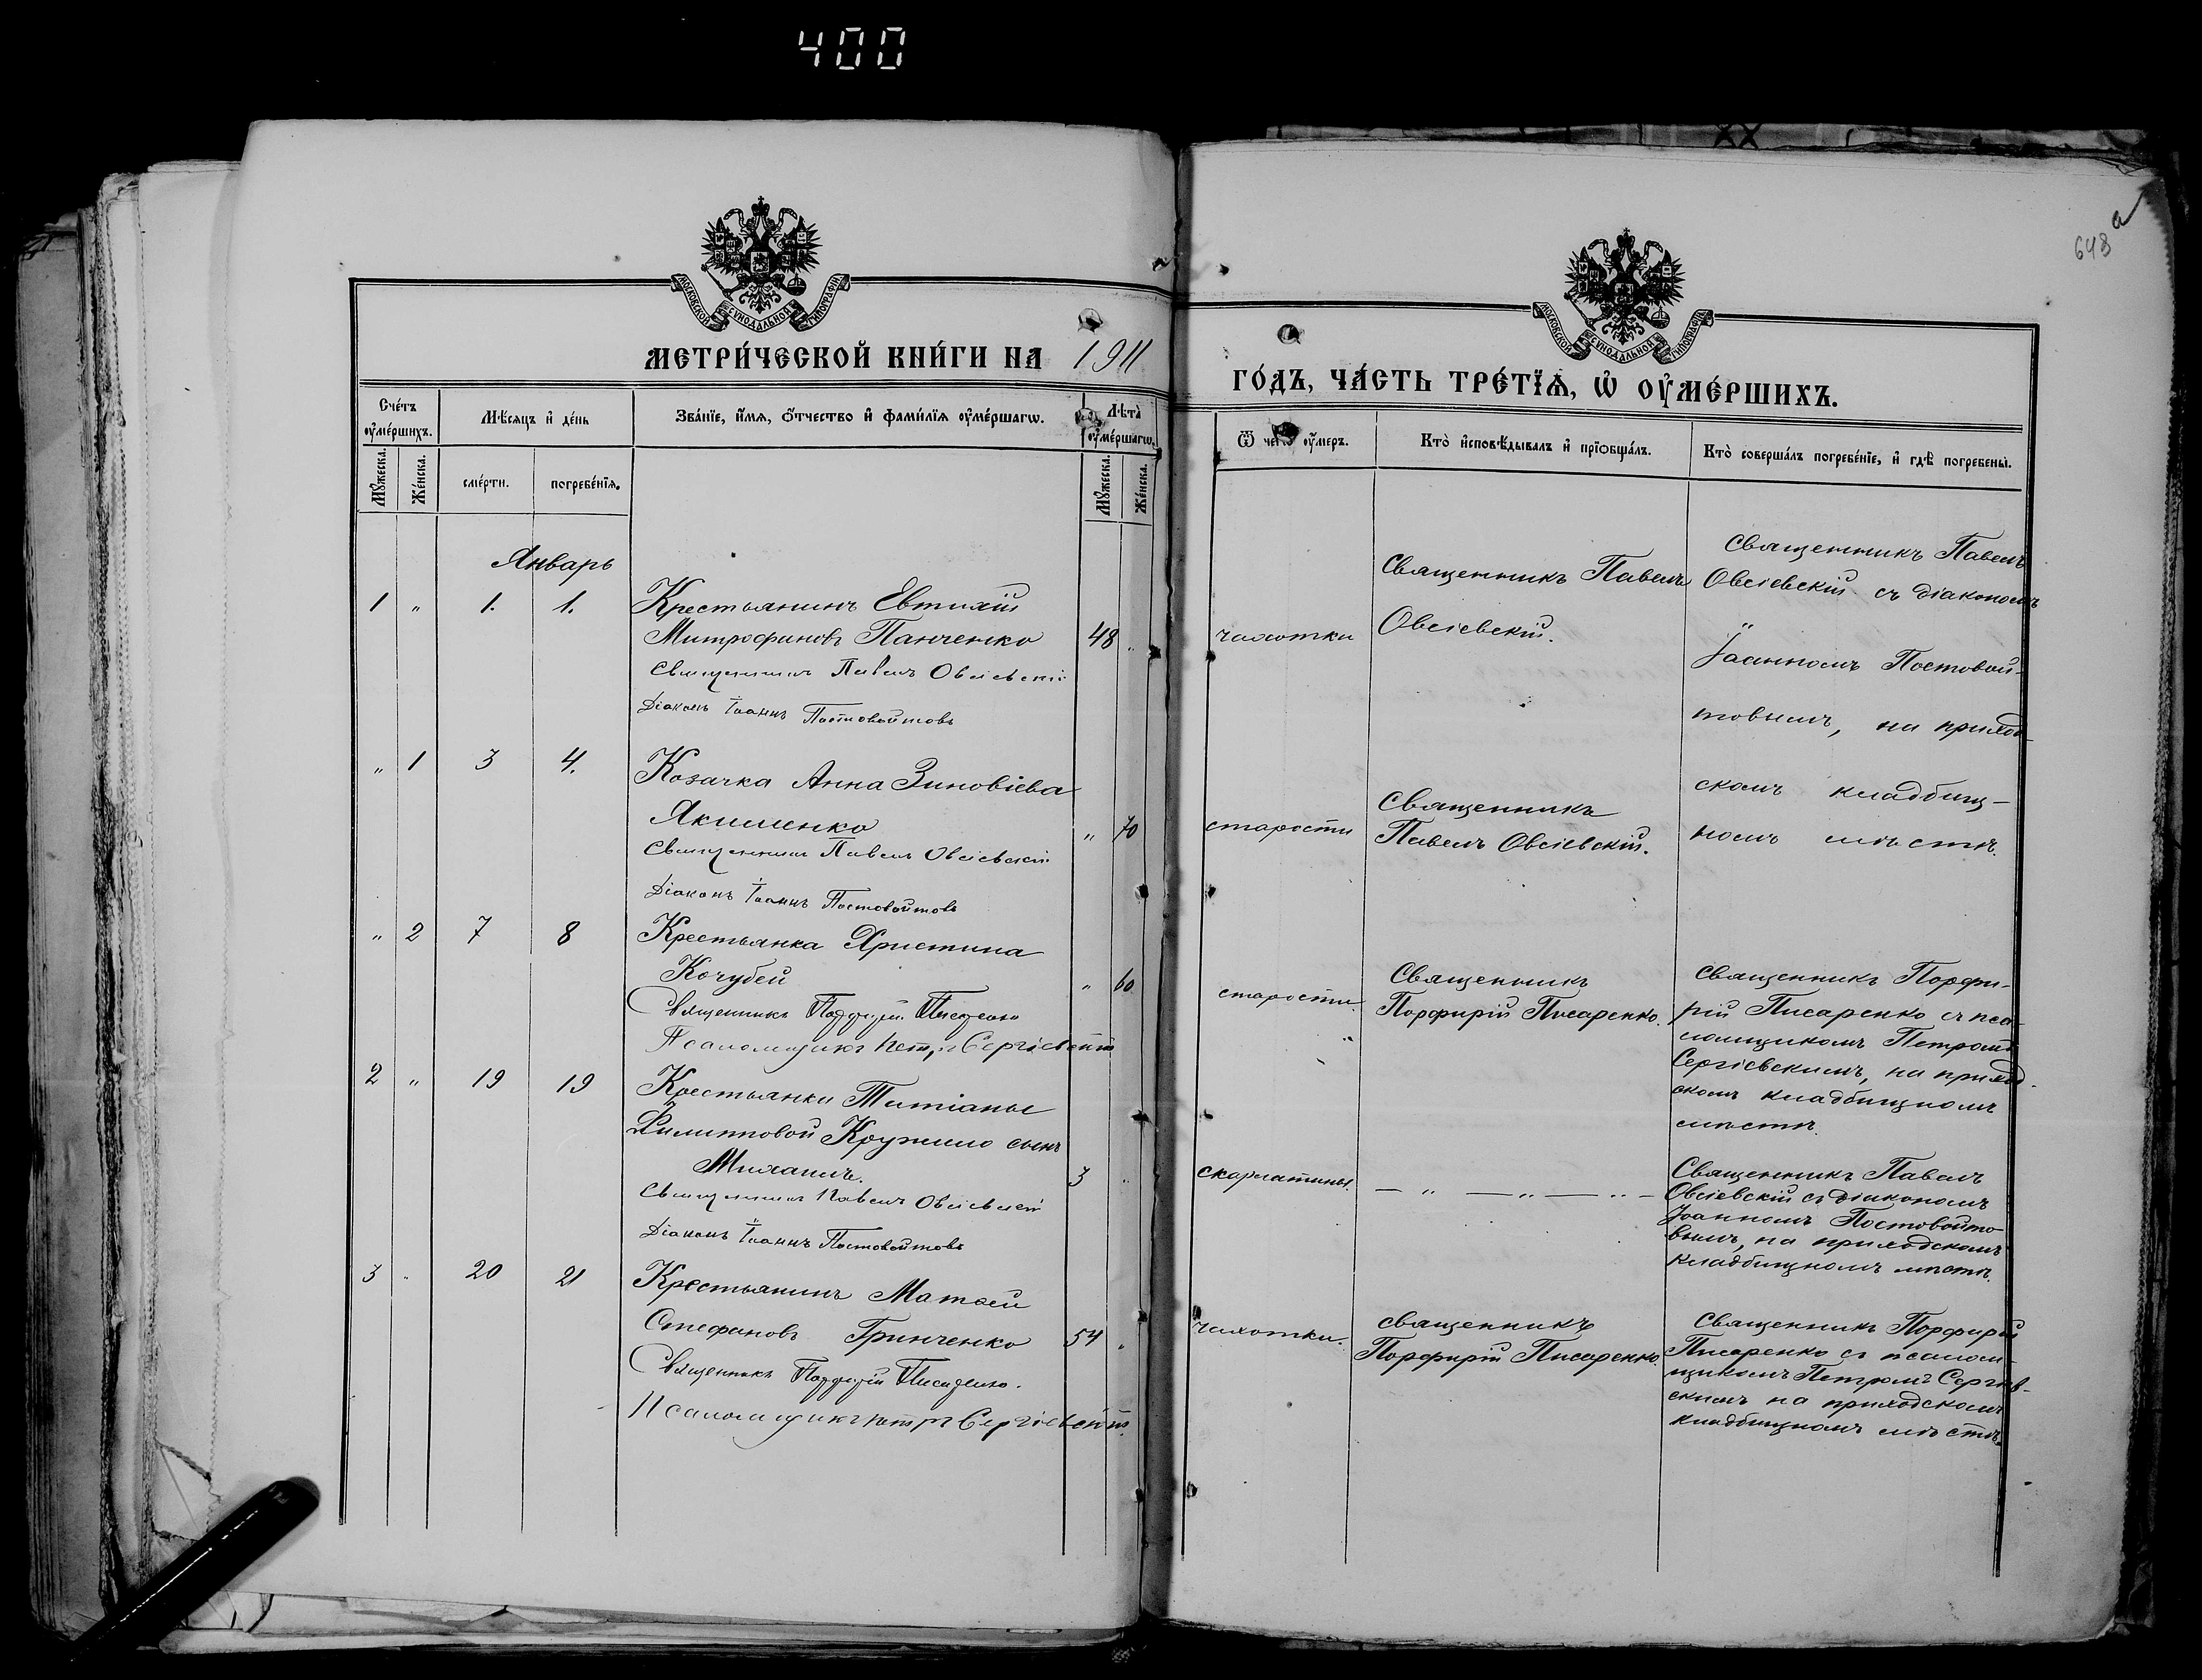 400
648 а
МОСКОВСКОЙ СѴНОДАЛЬНОЙ ТИПОГРАФІИ
МОСКОВСКОЙ СѴНОДАЛЬНОЙ ТИПОГРАФІИ
МЕТРИ́ЧЕСКОЙ КНИ́ГИ НА 1911
ГО́ДЪ, ЧА́СТЬ ТРЕ́ТЇѦ, Ѡ҆ ОУ҆МЕ́РШИХЪ.
Сче́тъ оу҆ме́ршихъ.
Мѣ́сяцъ и҆ де́нь
Зва́нїе, и҆́мѧ, ѻ҆́тчество и҆ фами́лїѧ оу҆ме́ршагѡ.
Лѣ́та оу҆ме́ршагѡ.
Мꙋ́жеска.
Же́нска.
сме́рти.
погребе́нїѧ.
Мꙋ́жеска.
Же́нска.
Ѿ чегѡ̀ оу҆́меръ.
Кто̀ и҆сповѣ́дывалъ и҆ прїѻбща́лъ.
Кто̀ соверша́лъ погребе́нїе, и҆ гдѣ̀ погребены̀.
Январь
1 " 1. 1. Крестьянинъ Евтихій
Митрофановъ Панченко 48 "
Священникъ Павелъ Овсіевскій
Діаконъ Іоаннъ Постовойтовъ
чахотки
Священникъ Павелъ
Овсіевскій.
Священникъ Павелъ
Овсіевскій съ діакономъ
Іоанномъ Постовой-
товымъ, на приход-
скомъ кладбищ-
номъ мѣстѣ.
" 1 3 4. Козачка Анна Зиновіева
Якименко " 70
Священникъ Павелъ Овсіевскій
Діаконъ Іоаннъ Постовойтовъ
старости
Священникъ
Павелъ Овсіевскій.
" 2 7 8 Крестьянка Христина
Кочубей " 60
Священникъ Порфирій Писаренко
Псаломщикъ Петръ Сергіевскій
старости
Священникъ
Порфирій Писаренко.
Священникъ Порфи-
рій Писаренко съ пса-
ломщикомъ Петромъ
Сергіевскимъ, на приход-
скомъ кладбищномъ
мѣстѣ.
2 " 19 19 Крестьянки Татіаны
Филипповой Кружило сынъ
Михаилъ. 3 "
Священникъ Павелъ Овсіевскій
Діаконъ Іоаннъ Постовойтовъ
скарлатины.
— " — " — " —
Священникъ Павелъ
Овсіевскій съ діакономъ
Іоанномъ Постовойто-
вымъ, на приходскомъ
кладбищномъ мѣстѣ.
3 " 20 21 Крестьянинъ Матѳей
Стефановъ Гринченко 54 "
Священникъ Порфирій Писаренко.
Псаломщикъ Петръ Сергіевскій.
чахотки.
священникъ
Порфирій Писаренко.
Священникъ Порфирій
Писаренко съ псалом-
щикомъ Петромъ Сергіев-
скимъ на приходскомъ
кладбищномъ мѣстѣ.